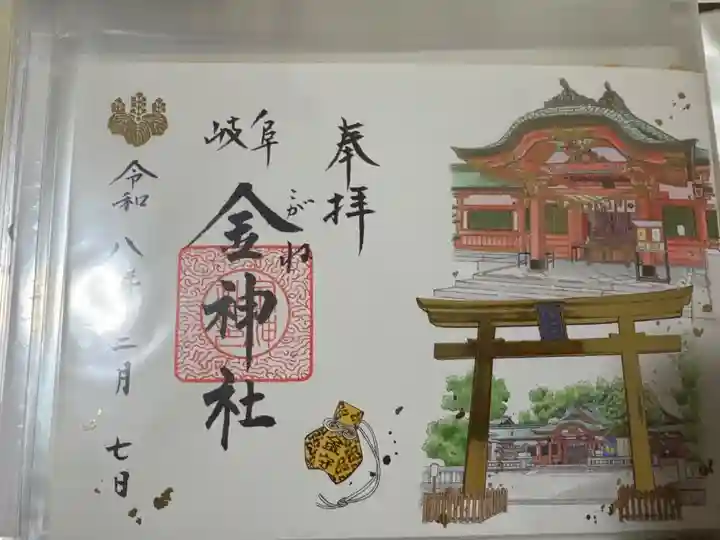 奉拝
岐阜
金神社
こがね
令和八年二月七日